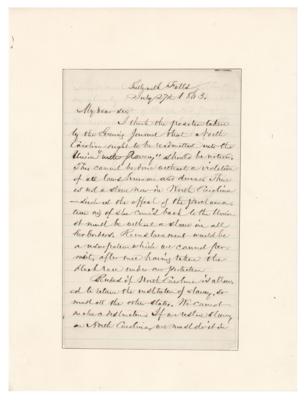 Falls
July 27th 1863.
My dear sir
I think the position taken
by the Evening Journal that North
Carolina ought to be readmitted into the
Union "with slavery" should be noticed.
This cannot be done without a violation
of all laws human and divine. There
is not a slave now in North Carolina
— such is the effect of the proclama-
tion
it must be without a slave in all
her borders. Reenslavement would be
a usurpation which we cannot per-
mit, after once having taken the
black race under our protection.
Besides if North Carolina is allow-
ed to retain the institution of slavery, so
must all the other states. We cannot
make a distinction. If we restore slavery
in North Carolina, we must do it in